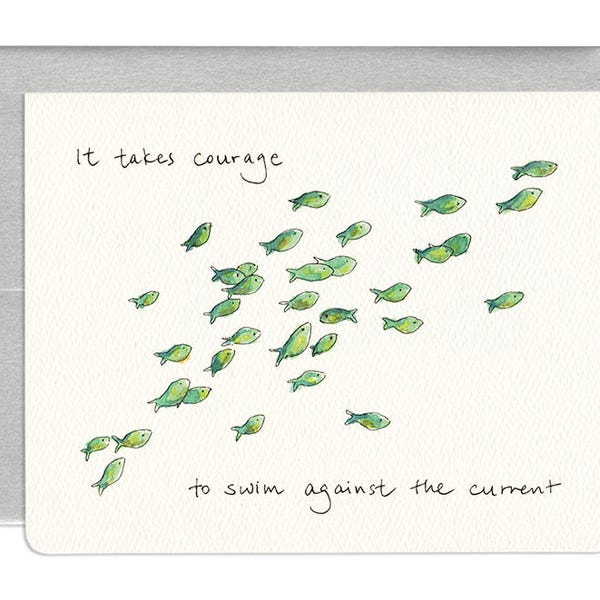 It takes courage
to swim against the current